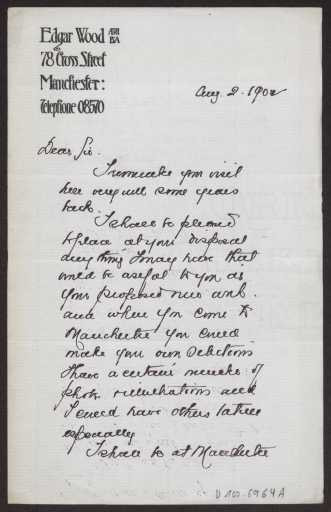 Edgar Wood ARIBA
78 Cross Street
Manchester:
Telephone 08570
Aug. 2. 1902
Dear Sir.
I remember your visit
here very well some years
back.
I shall be pleased
to place at your disposal
anything I may have that
would be useful to you in
your proposed
and when you come to
Manchester you could
make your own selections
I have a certain number of
photos & illustrations and
I could have others taken
especially
I shall be at Manchester
D 100-6964 A